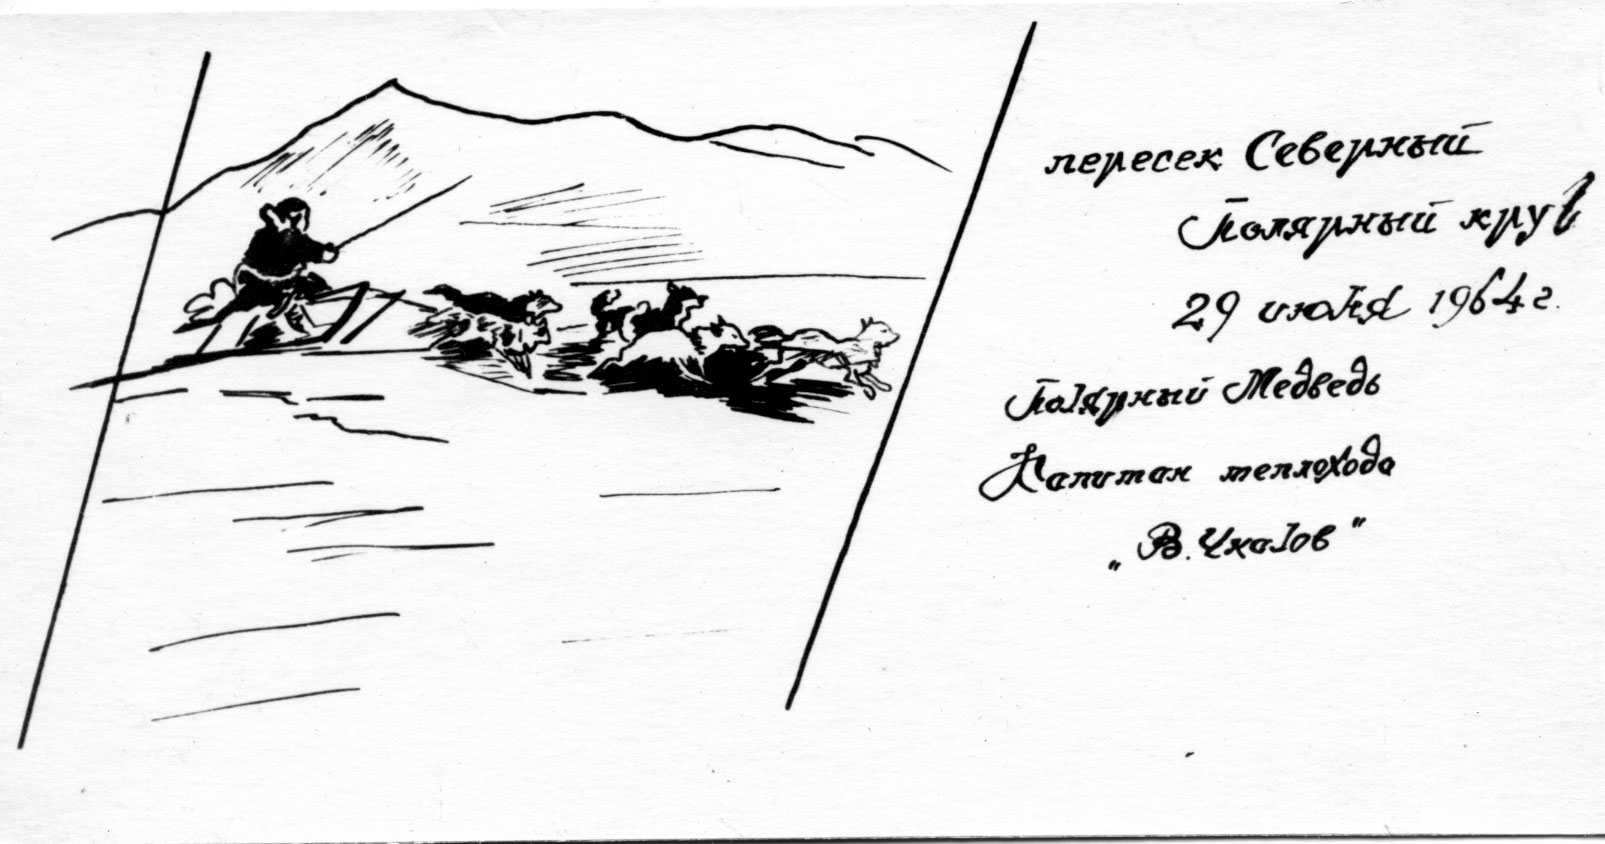 пересек Северный
Полярный круг
29 июня 1964 г.
Полярный Медведь
Капитан теплохода
„В. Чкалов"